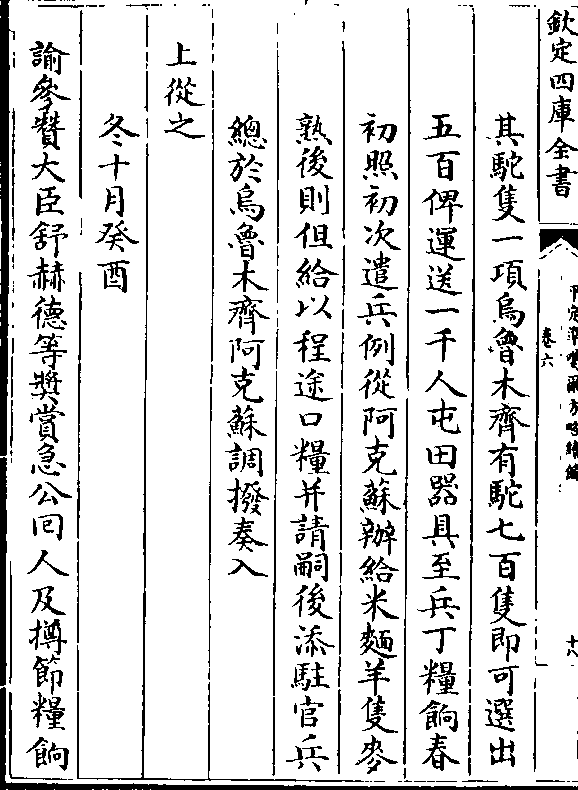 欽定四庫全書
平定準噶爾方略續編
卷六
十八
其駝隻一項烏魯木齊有駝七百隻即可選出
五百俾運送一千人屯田器具至兵丁糧餉春
初照初次遣兵例從阿克蘇辦給米麵羊隻麥
熟後則但給以程途口糧并請嗣後添駐官兵
總於烏魯木齊阿克蘇調撥奏入
上從之
冬十月癸酉
諭參贊大臣舒赫德等奬賞急公回人及撙節糧餉